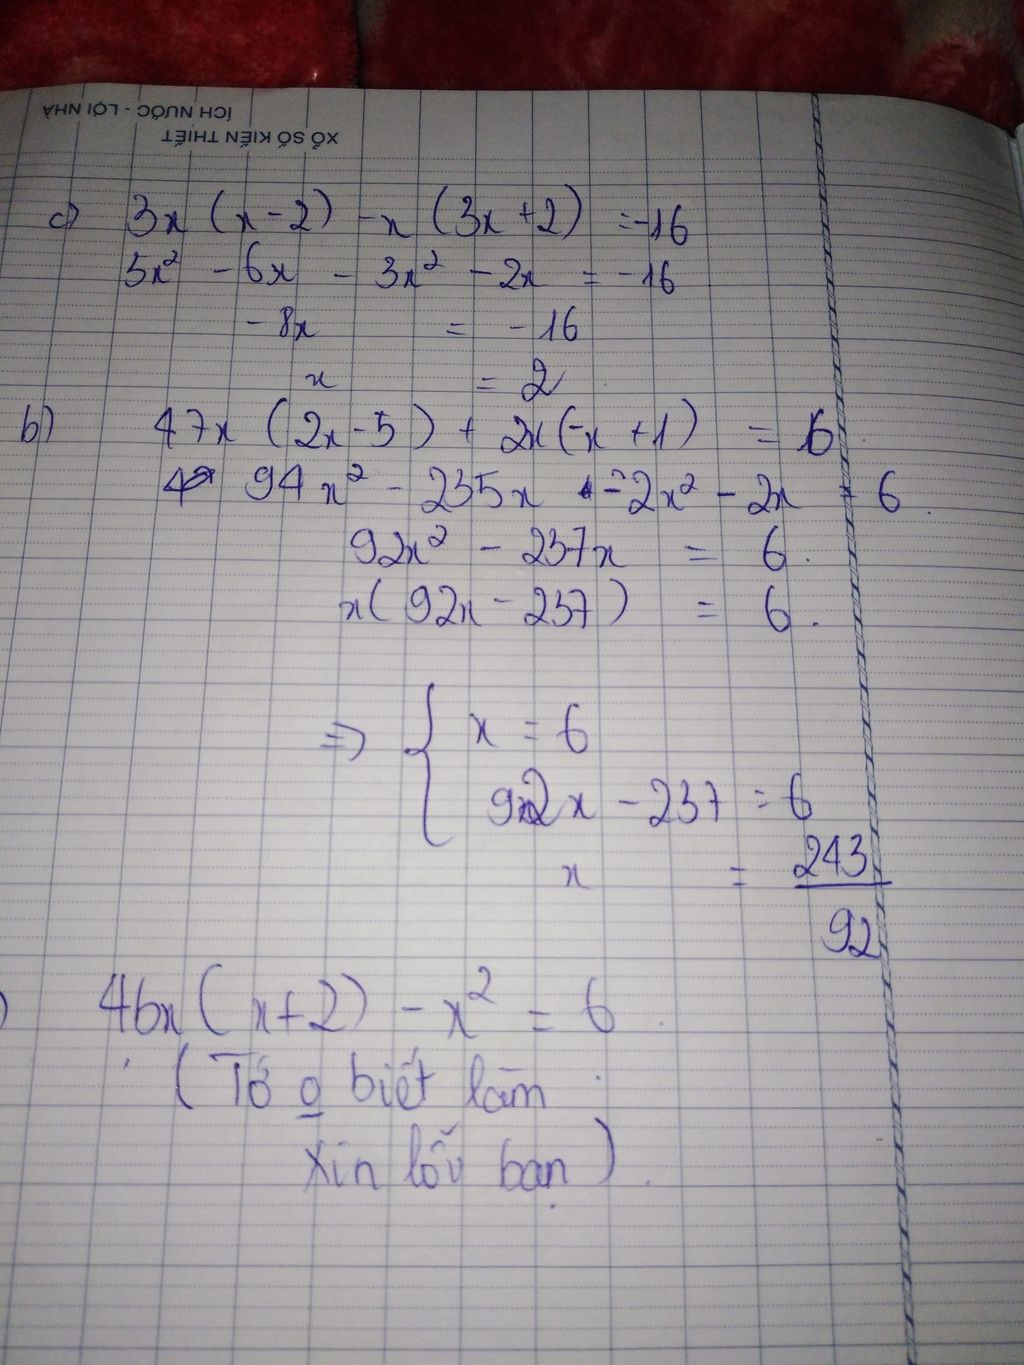 ÍCH NƯỚC - LỢI NHÀ
XỔ SỐ KIẾN THIẾT
c) 3x (x-2) -x (3x+2) =-16
3x² - 6x - 3x² - 2x = -16
- 8x = - 16
x = 2
b) 47x (2x-5) + 2x(-x +1) = 6.
94x² - 235x -2x² - 2x = 6.
92x² - 237x = 6.
x(92x - 237) = 6.
=> { x = 6
92x - 237 = 6
x = 243/92
) 46x(x+2) - x² = 6.
(Tớ o biết làm
xin lỗi bạn).